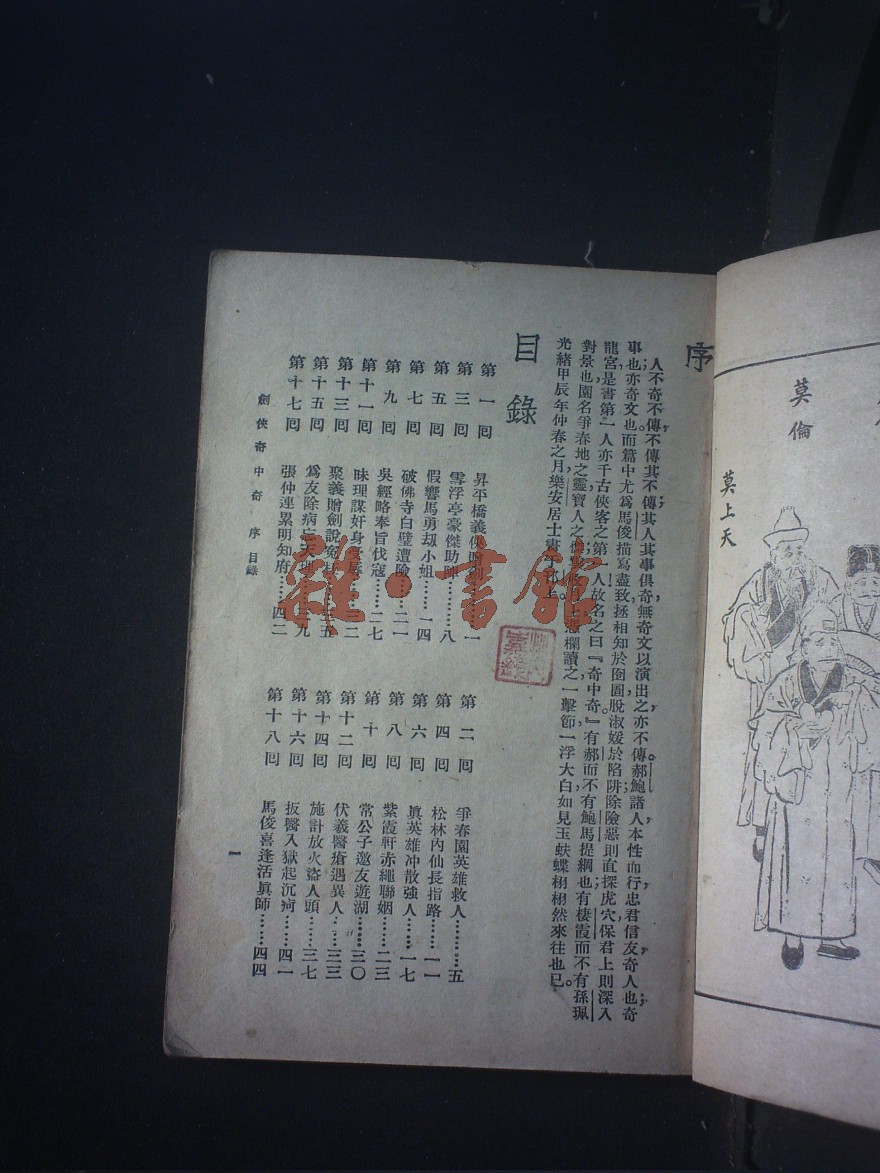 莫倫
莫上天
序
人不奇不傳不傳其不傳其人其事俱奇無奇文以演出之亦不傳郝鮑諸人本性而行忠君信友奇人也奇
事也亦奇文也而篇中尤爲馬俊描寫盡致拯相知於囹圄脫淑媛於陷阱除險惡則直探虎穴保君上則深入
龍宮是書第一人亦千古俠客之第一人故名之曰『奇中奇』有郝而不有鮑馬提綱也有棲霞而不有孫珮
對景也園名爭春地之靈寶人之傑 欄讀之一擊節一浮大白如見玉蚨蝶栩栩然來往也已
光緒甲辰年仲春之月樂安居士書
目錄
第一回 昇平橋義俠 一
第二回 爭春園英雄救人………五
第三回 雪浮亭豪傑助 八
第四回 松林內仙長指路………一一
第五回 假響馬勇刼小姐……一四
第六回 眞英雄冲散強人………一七
第七回 破佛寺白璧遭險……二一
第八回 紫霞軒赤繩聯姻………二三
第九回 吳經略奉旨伐寇……二七
第十回 常公子邀友遊湖………三〇
第十一回 昧理謀奸身受辱
第十二回 伏羲醫瘡遇異人………三三
第十三回 聚義贈劍說寃
第十四回 施計放火盜人頭………三七
第十五回 爲友除病忘天理
第十六回 扳醫入獄起沉疴………四一
第十七回 張仲連累明知府……四二
第十八回 馬俊喜逢活眞師………四四
劍俠奇中奇 序 目錄
一
雜·書館